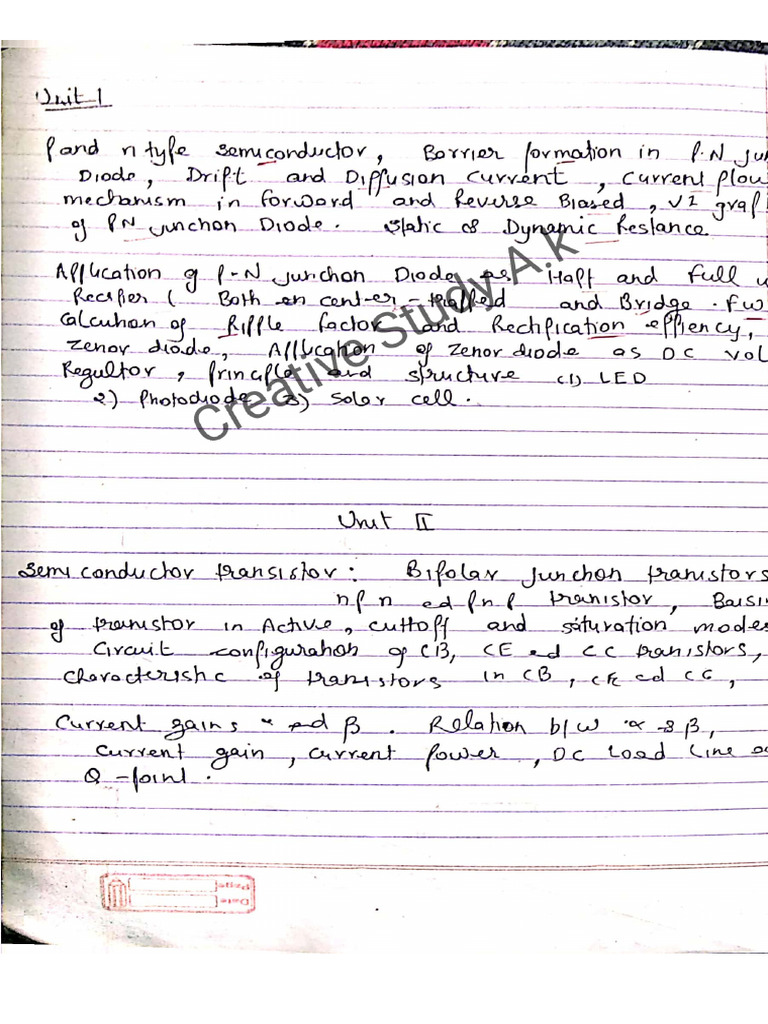 Unit 1
P and n type semiconductor, Barrier formation in P.N jun
Diode, Drift and Diffusion current, current flow
mechanism in forword and Reverse Biased, VI graf
of PN junction Diode. Static & Dynamic Restance
Application of P-N junction Diode as Half and full w
Rectifier ( Both en center-trapped and Bridge. FW
calcution of Ripple factor and Rectification effiency,
zenor diode, Application of zenor diode as DC vol
Regultor, principle and structure (1) LED
2) Photodiode 3) Solar cell.
Unit II
Semiconductor transistor: Bipolar junction tranistors
npn ed pnp tranistor, Baisi
of tranistor in Active, cuttoff and situration modes
Circuit configuration of CB, CE ed CC tranistors,
characteristic of tranistors in CB, CE ed CC,
Current gains ∝ ed β. Relation b/w ∝ & β,
current gain, current power, DC Load Line a
Q-point.
Page
Date
Creative Study.A.k